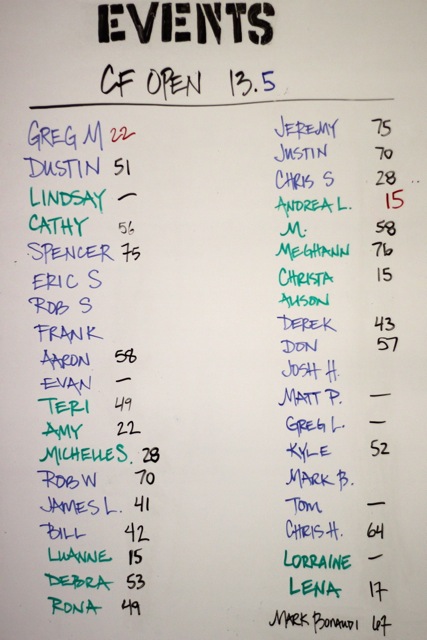 EVENTS
CF OPEN 13.5
GREG M 22
DUSTIN 51
LINDSAY —
CATHY 56
SPENCER 75
ERIC S
ROB S
FRANK
AARON 58
EVAN —
TERI 49
AMY 22
MICHELLE S. 28
ROB W 70
JAMES L. 41
BILL 42
LUANNE 15
DEBRA 53
RONA 49
JEREMY 75
JUSTIN 70
CHRIS S 28
ANDREA L. 15
M. 58
MEGHANN 76
CHRISTA 15
ALISON
DEREK 43
DON 57
JOSH H.
MATT P. —
GREG L. —
KYLE 52
MARK B.
TOM —
CHRIS H. 64
LORRAINE —
LENA 17
MARK BONAUDI 67